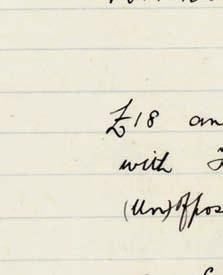 £18 an
with
(un)oppos